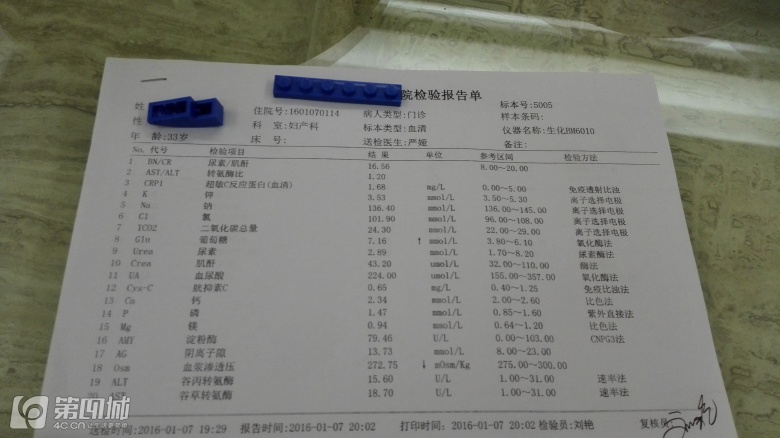 院检验报告单
姓
住院号:1601070114 病人类型:门诊 标本号:5005
性
科 室:妇产科 标本类型:血清 样本条码:
年 龄:33岁 床 号: 送检医生:严娅 仪器名称:生化BM6010
备注:
No. 代号 检验项目 结 果 单位 参考区间 检验方法
1 BN/CR 尿素/肌酐 16.56 8.00~20.00
2 AST/ALT 转氨酶比 1.20
3 CRP1 超敏C反应蛋白(血清) 1.68 mg/L 0.00~5.00 免疫透射比浊
4 K 钾 3.53 mmol/L 3.50~5.30 离子选择电极
5 Na 钠 136.40 mmol/L 136.00~145.00 离子选择电极
6 Cl 氯 101.90 mmol/L 96.00~108.00 离子选择电极
7 TCO2 二氧化碳总量 24.30 mmol/L 22.00~29.00 离子选择电极
8 Glu 葡萄糖 7.16 ↑ mmol/L 3.80~6.10 氧化酶法
9 Urea 尿素 2.89 mmol/L 1.70~8.20 尿素酶法
10 Crea 肌酐 43.20 umol/L 32.00~110.00 酶法
11 UA 血尿酸 224.00 umol/L 155.00~357.00 氧化酶法
12 Cys-C 胱抑素C 0.65 mg/L 0.40~1.25 免疫比浊法
13 Ca 钙 2.34 mmol/L 2.00~2.60 比色法
14 P 磷 1.47 mmol/L 0.85~1.60 紫外直接法
15 Mg 镁 0.94 mmol/L 0.64~1.20 比色法
16 AMY 淀粉酶 79.46 U/L 0.00~103.00 CNPG3法
17 AG 阴离子隙 13.73 mmol/L 8.00~23.00
18 Osm 血浆渗透压 272.75 ↓ mOsm/Kg 275.00~300.00
19 ALT 谷丙转氨酶 15.60 U/L 1.00~31.00 速率法
20 AST 谷草转氨酶 18.70 U/L 1.00~31.00 速率法
送检时间:2016-01-07 19:29 报告时间:2016-01-07 20:02 打印时间:2016-01-07 20:02 检验员:刘艳 复核员
第四城
4C.CN